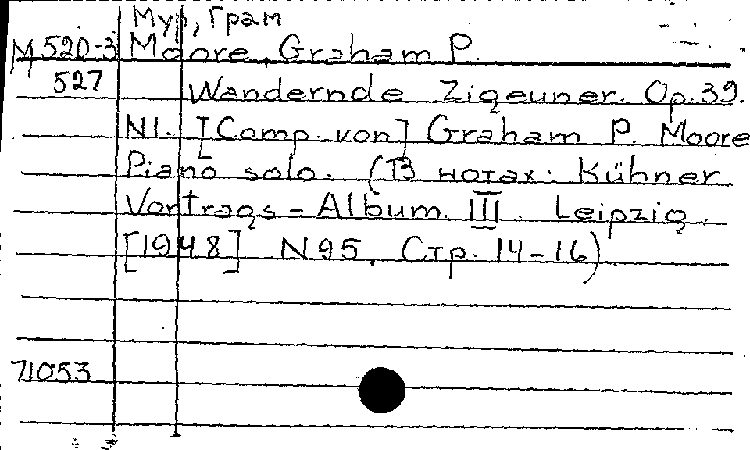 Мур, Грам
М 520-3 Moore, Graham P.
527 Wandernde Zigeuner. Op. 39.
N1. [Comp. von] Graham P. Moore
Piano solo. (В нотах: Kühner
Vortrags-Album. III. Leipzig.
[1948] N 95. Стр. 14-16).
71053